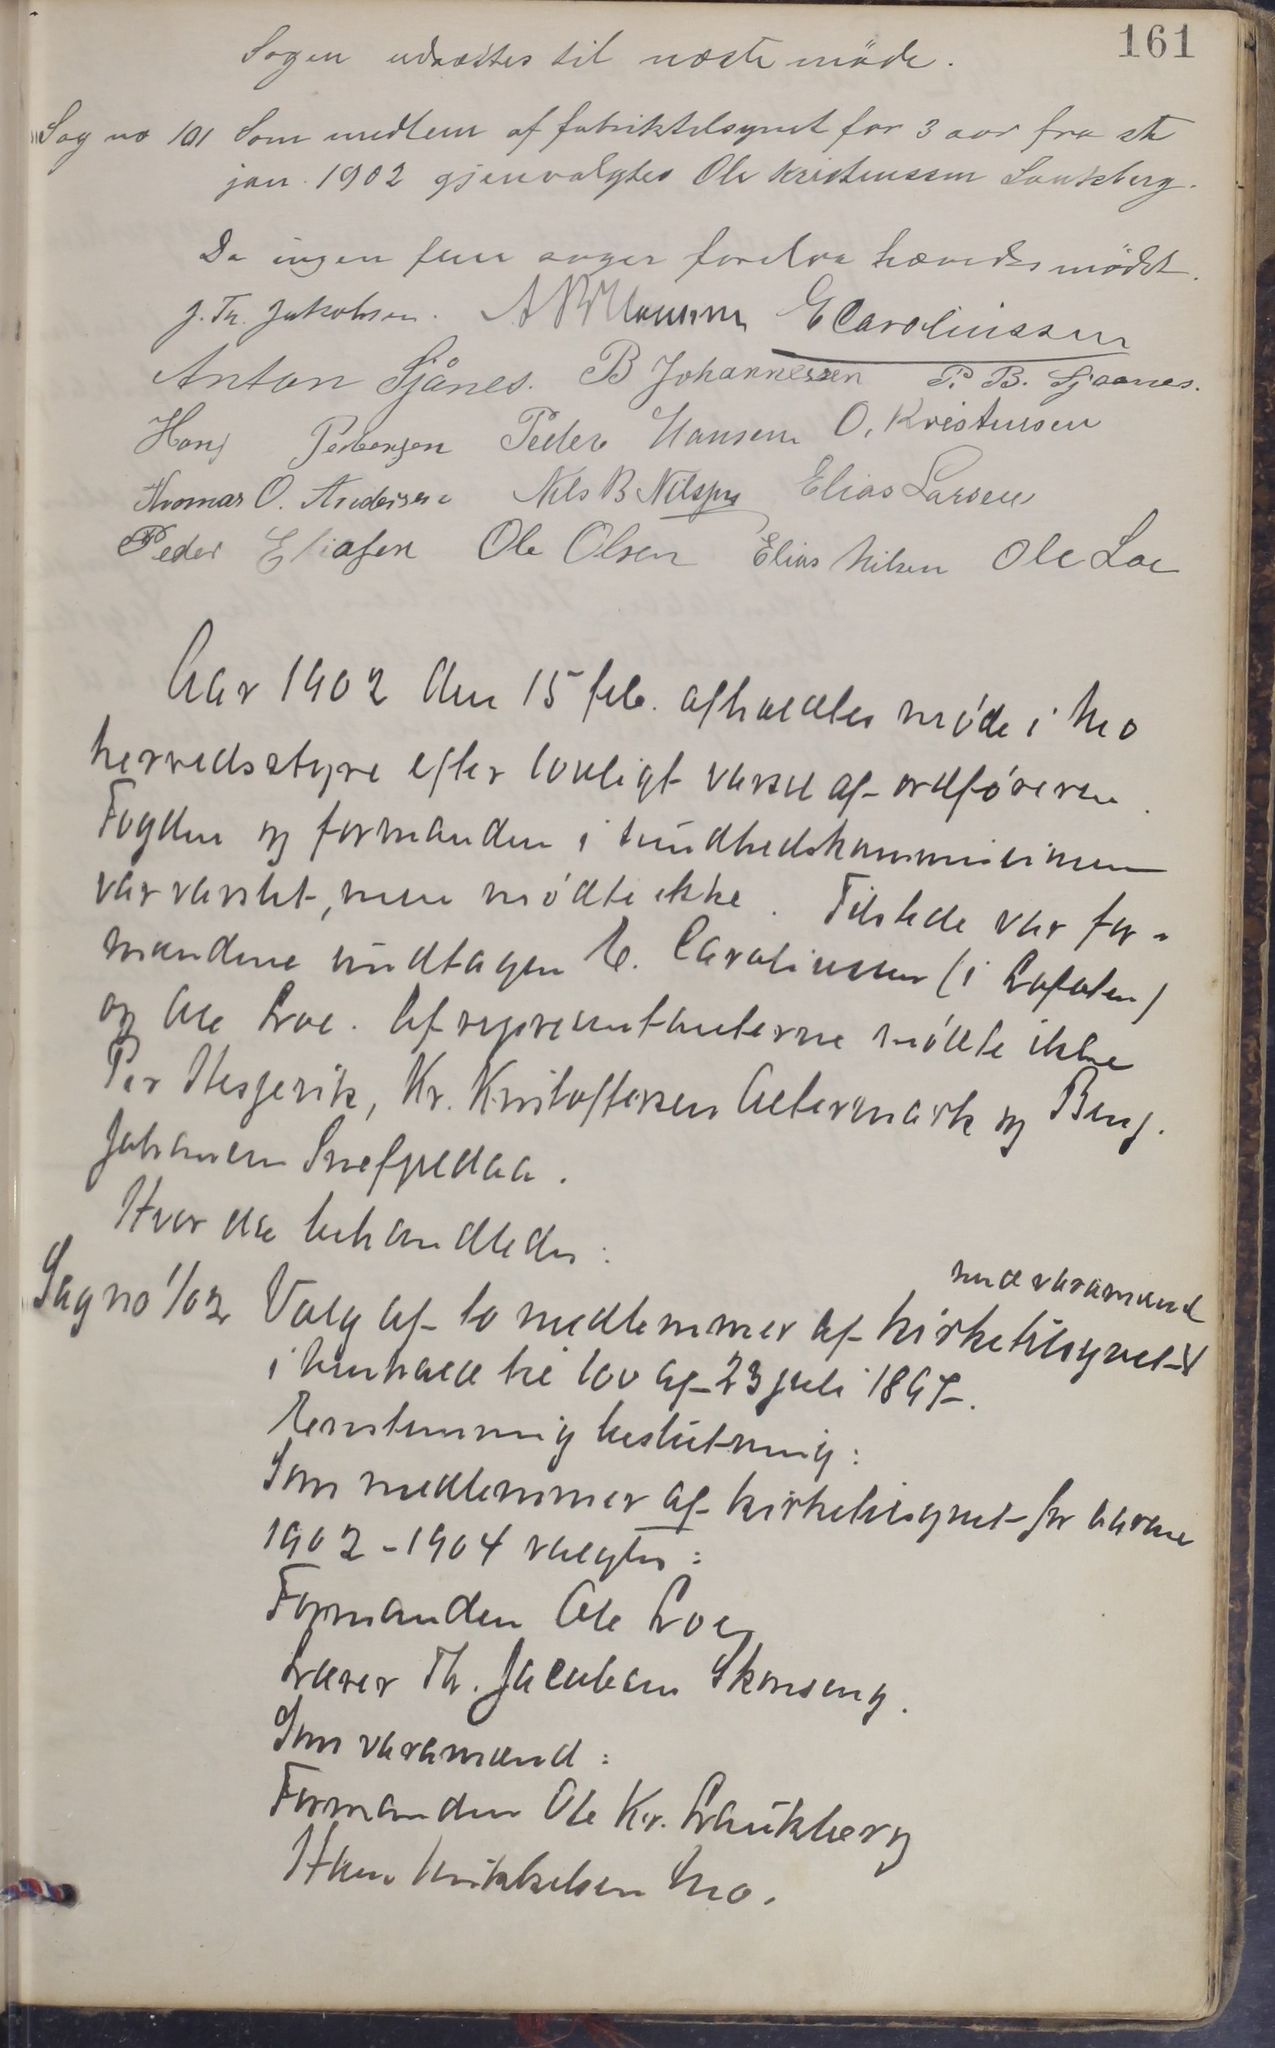 161
Sagen udsættes til næste møde.
Sag no 101 Som medlem af fabriktilsynet for 3 aar fra 1ste
jan. 1902 gjenvalgtes Ole Kristenssen Laukberg.
Da ingen flere sager forelaa hævedes mödet.
J. Th. Jakobsen. E Carolinssen
Anton Sjånes. B Johannessen P. B. Sjaanes.
Hans Pedersen Peder Hansen O. Kristensen
Thomas O. Andersen Nils B Nilsen Elias Larsen
Peder Eliasen Ole Olsen Elias Nilsen Ole Loe
Aar 1902 den 15 feb. afholdtes møde i Mo
herredsstyre efter lovligt varsel af ordføreren.
Fogden og formanden i sundhedskommisionen
var varslet, men mødte ikke. Tilstede var for-
mændene undtagen E. Carolinssen (i Lofoten)
og Ole Loe. Af repræsentanterne mødte ikke
Per Hesjevik, Kr. Kristoffersen Altermark og Benj.
Johansen Snefjeldaa.
Hvor da behandledes:
med varamænd
Sag no 1/02 Valg af to medlemmer af kirketilsynet
i henhold til lov af 23 juli 1897.
Eenstemmig beslutning:
Som medlemmer af kirketilsynet for aarene
1902-1904 valgtes:
Formanden Ole Loe
Lærer Th. Jacobsen Skonseng.
Som varamænd:
Formanden Ole Kr. Laukberg
Hans Mikkelsen Mo.